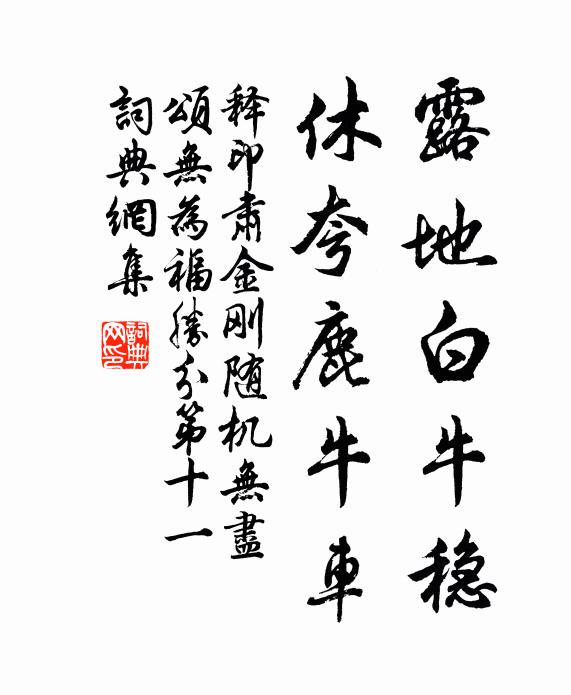 露地白牛穏
休夸鹿牛車
释印肃金刚随机無盡
頌無為福勝分第十一
詞典網集
詞典网印